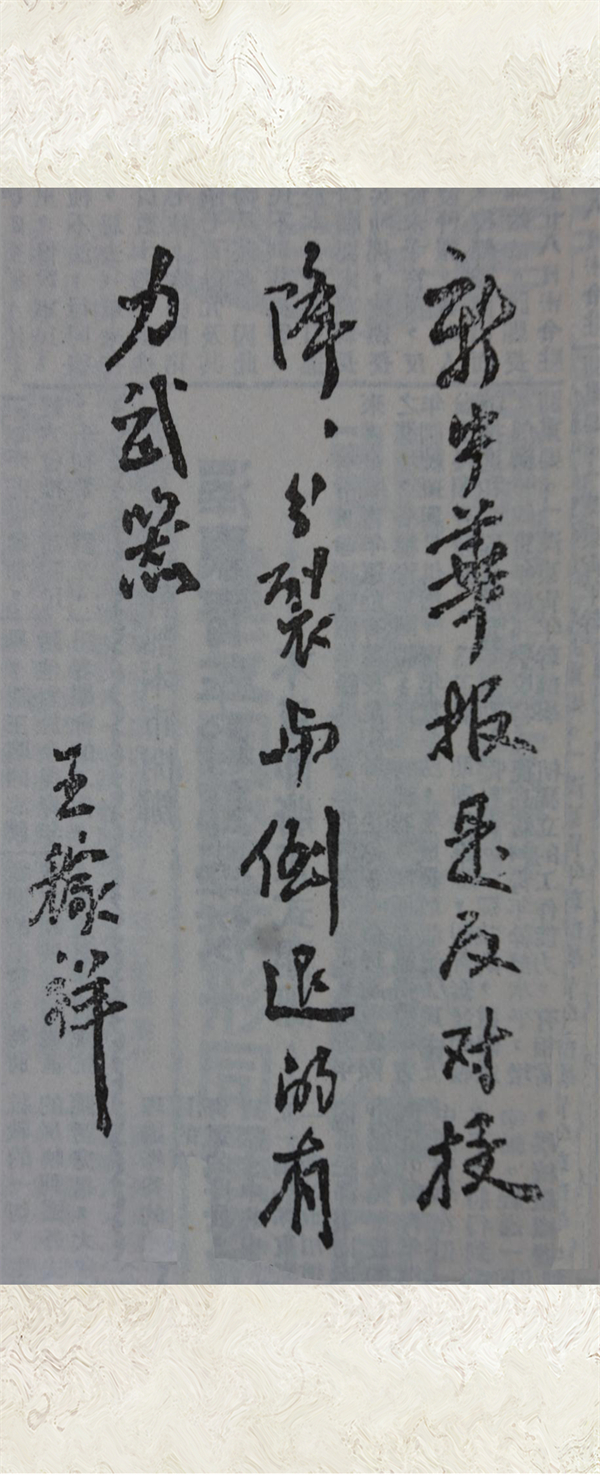 新中華报是反对投
降、分裂与倒退的有
力武器
王稼祥